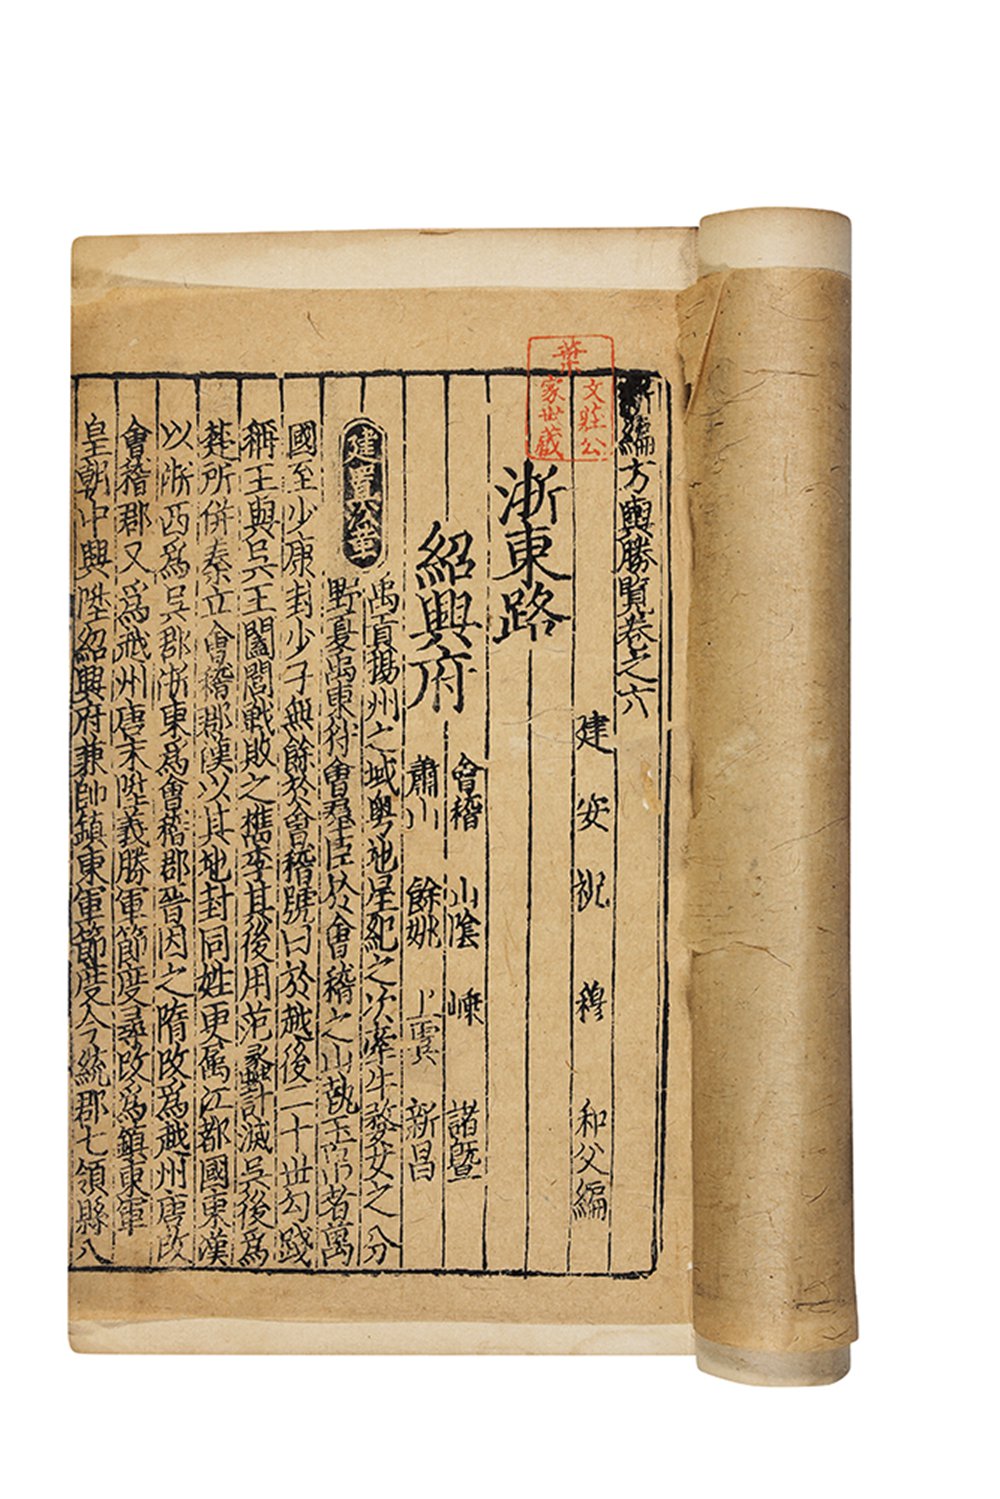 新編方輿勝覽卷之六
建安祝穆和父編
浙東路
紹興府
會稽 山陰 嵊 諸暨
蕭山 餘姚 上虞 新昌
建置沿革
禹貢揚州之域輿地星紀之次牽牛婺女之分
野夏禹東狩會羣臣於會稽之山執玉帛者萬
國至少康封少子無餘於會稽號曰於越後二十世勾踐
稱王與吳王闔閭戰敗之檇李其後用范蠡計滅吳後爲
楚所併秦立會稽郡漢以其地封同姓更属江都國東漢
以浙西爲吳郡浙東爲會稽郡晉因之隋改爲越州唐改
會稽郡又爲越州唐末陞義勝軍節度尋改爲鎮東軍
皇朝中興陞紹興府兼帥鎮東軍節度今統郡七領縣八
葉文莊公家世藏